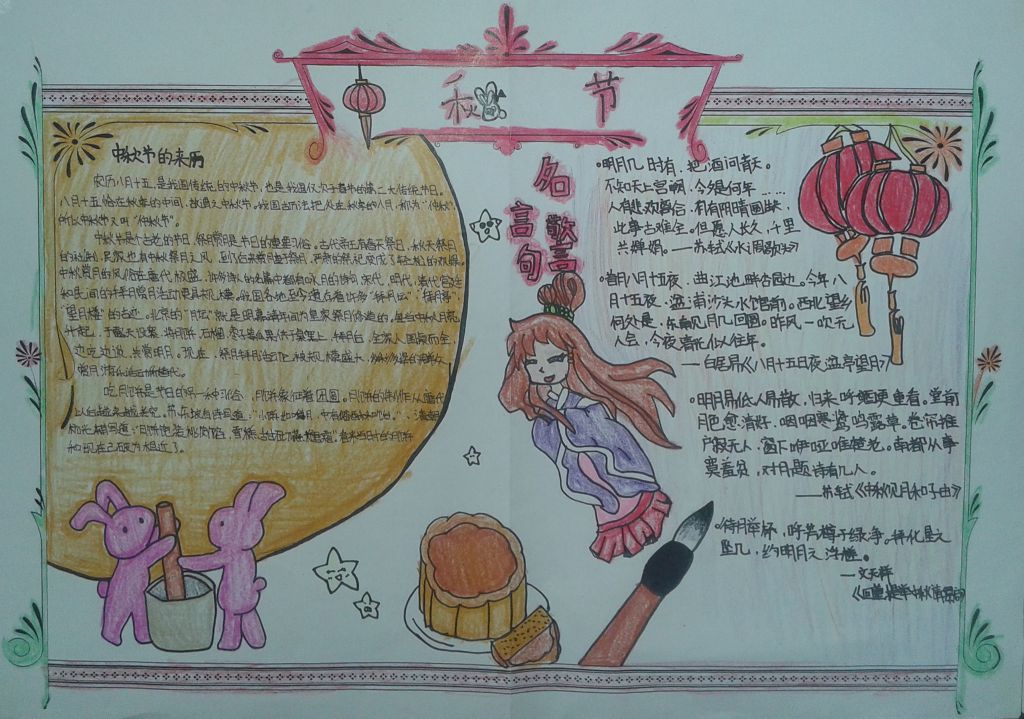 秋 节
中秋节的来历
农历八月十五,是我国传统的中秋节,也是我国仅次于春节的第二大传统节日。
八月十五恰在秋季的中间,故谓之中秋节。我国古历法把处在秋季的八月,称为“仲秋”,
所以中秋节又叫“仲秋节”。
中秋节是个古老的节日,祭月赏月是节日的重要习俗。古代帝王有春天祭日,秋天祭月
的社制,民家也有中秋祭月之风,到了后来赏月重于祭月,严肃的祭祀变成了轻松的欢娱。
中秋赏月的风俗在唐代极盛,许多诗人的名篇中都有咏月的诗句,宋代、明代、清代宫廷
和民间的拜月赏月活动更具规模。我国各地至今遗存着许多“拜月坛”、“拜月亭”、
“望月楼”的古迹。北京的“月坛”就是明嘉靖年间为皇家祭月修造的。
边吃边谈,共赏明月。现在,祭月拜月活动已被规模盛大、
吃月饼是节日的另一种习俗,月饼象征着团圆。月饼的制作从唐代
和现在已颇为相近了。
名言警句
明月几时有,把酒问青天。
不知天上宫阙,今夕是何年……
人有悲欢离合,月有阴晴圆缺,
此事古难全。但愿人长久,千里
共婵娟。——苏轼《水调歌头》
昔月八十五夜,曲江池畔杏园边。今年八
月十五夜,湓浦沙头水馆前。西北望乡
何处是,东南见月几回圆。昨风一吹无
人会,今夜清光似往年。
——白居易《八月十五日夜湓亭望月》
明月易低人易散,归来呼酒更重看。堂前
月色愈清好,咽咽寒螀鸣露草。卷帘推
户寂无人,窗下咿哑唯楚老。南都从事
莫羞贫,对月题诗有几人。
——苏轼《中秋见月和子由》
待月举杯,呼芳樽于绿净。拜化是之
坠几,约明月之浮槎。
——文天祥